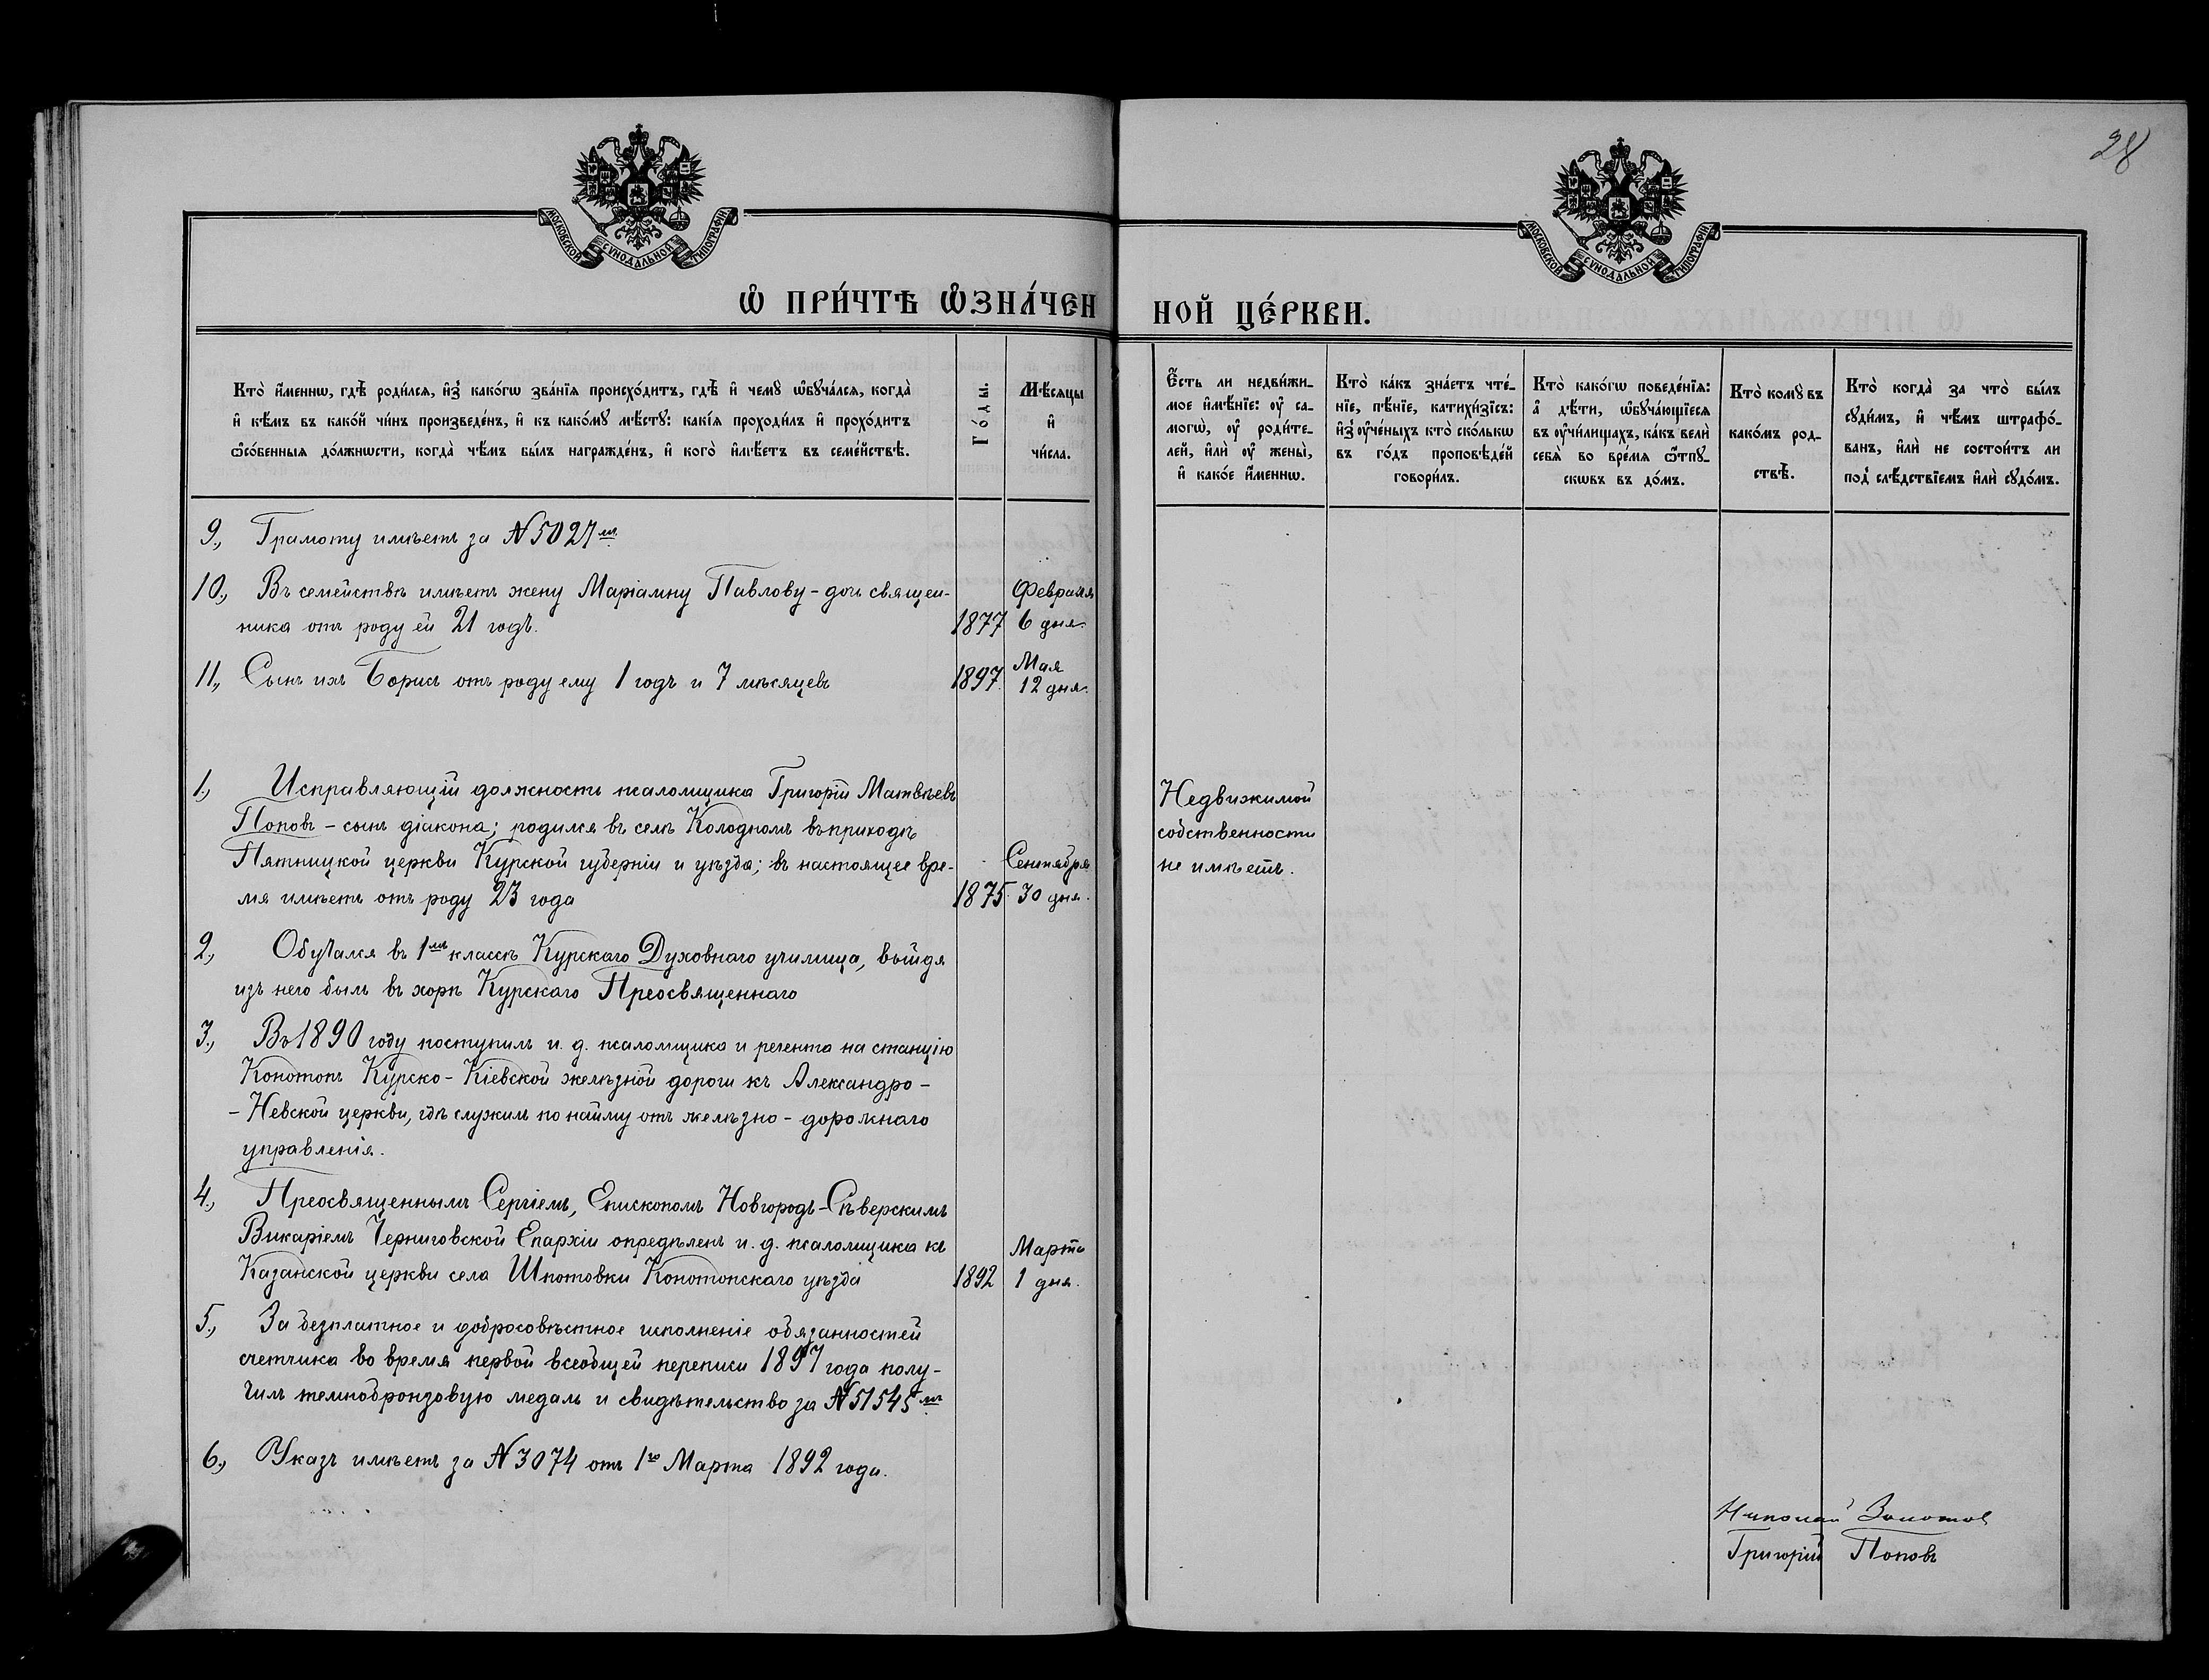 28
МОСКОВСКОЙ СѴНОДАЛЬНОЙ ТИПОГРАФІИ
МОСКОВСКОЙ СѴНОДАЛЬНОЙ ТИПОГРАФІИ
Ѽ ПРИ́ЧТѢ Ѽ҆ЗНА́ЧЕННОЙ ЦЕ́РКВИ.
Кто̀ и҆́менно, гдѣ̀ роди́лся, и҆з̾ какѡ́гѡ зва́нїѧ происхо́дитъ, гдѣ̀ и҆ чемꙋ̀ ѡ҆бꙋча́лся, когда̀
и҆ кѣ́мъ въ како́й чи́нъ произведе́нъ, и҆ къ како́мꙋ мѣ́стꙋ: какі́ѧ проходи́лъ и҆ прохо́дитъ
ѻ҆со́бенныѧ до́лжности, когда̀ чѣ́мъ бы́лъ награжде́нъ, и҆ кого̀ и҆мѣ́етъ въ семе́йствѣ.
Го́ды.
Мѣ́сяцы
и҆
чи́сла.
Е҆́сть ли недви́жи-
мое и҆мѣ́нїе: ᲂу҆ са-
могѡ̀, ᲂу҆ роди́те-
лей, и҆лѝ ᲂу҆ жены̀,
и҆ како́е и҆́меннѡ.
Кто̀ ка́къ зна́етъ чте́-
нїе, пѣ́нїе, катихи́зїсъ:
и҆з̾ ᲂу҆че́ныхъ кто̀ ско́лькѡ
въ го́дъ проповѣ́дей
говори́лъ.
Кто̀ како́гѡ поведе́нїѧ:
а҆ дѣ́ти, ѡ҆бꙋча́ющїесѧ
въ ᲂу҆чи́лищахъ, ка́къ велѝ
себѧ̀ во вре́мѧ ѿпꙋ-
сковъ въ до́мъ.
Кто̀ комꙋ̀ въ
како́мъ род-
ствѣ̀.
Кто̀ когда̀ за что̀ бы́лъ
сꙋди́мъ, и҆ чѣ́мъ штрафо́-
ванъ, и҆лѝ не состои́тъ ли
под̾ слѣ́дствїемъ и҆лѝ сꙋдо́мъ.
9., Грамоту имѣетъ за №5027мъ
10., Въ семействѣ имѣетъ жену Маріамну Павлову - дочь священ-
ника отъ роду ей 21 годъ. 1877 Февраля 6 дня.
11., Сынъ ихъ Борисъ отъ роду ему 1 годъ и 7 мѣсяцевъ 1897. Мая 12 дня.
1., Исправляющій должность псаломщика Григорій Матвѣевъ
Поповъ - сынъ діакона; родился въ селѣ Колодномъ въ приходѣ
Пятницкой церкви Курской губерніи и уѣзда; въ настоящее вре-
мя имѣетъ отъ роду 23 года 1875. Сентября 30 дня.
Недвижимой
собственности
не имѣетъ.
2., Обучался въ 1мъ классѣ Курскаго Духовнаго училища, выйдя
изъ него былъ въ хорѣ Курскаго Преосвященнаго
3., Въ 1890 году поступилъ и. д. псаломщика и регента на станцію
Конотопъ Курско-Кіевской желѣзной дороги къ Александро-
-Невской церкви, гдѣ служилъ по найму отъ желѣзно-дорожнаго
управленія.
4., Преосвященнымъ Сергіемъ, Епископомъ Новгородъ-Сѣверскимъ
Викаріемъ Черниговской Епархіи опредѣленъ и. д. псаломщика къ
Казанской церкви села Шпотовки Конотопскаго уѣзда 1892 Марта 1 дня.
5., За безплатное и добросовѣстное исполненіе обязанностей
счетчика во время первой всеобщей переписи 1897 года полу-
чилъ темнобронзовую медаль и свидѣтельство за №51545мъ
6., Указъ имѣетъ за №3074 отъ 1го Марта 1892 года.
Николай Золотов
Григорій Поповъ